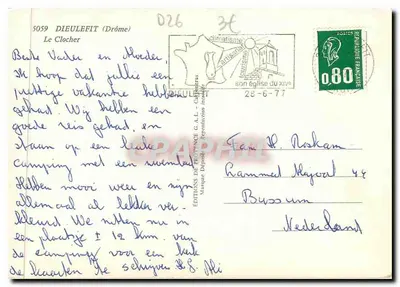 D26 3€
5059 DIEULEFIT (Drôme)
Le Clocher
son église du XIVe
DIEULEFIT
28-6-77
REPUBLIQUE FRANÇAISE
0.80
Beste Vader en Moeder,
Ik hoop dat jullie een
prettige vakantie hebben
gehad. Wij hebben een
goede reis gehad, en
staan op een leuke
camping met een zwembad
Hebben mooi weer en zijn
allemaal al lekker ver-
kleurd. We zitten nu in
een plaatsje ± 12 km. van
de camping voor een kerk
de kaarten te schrijven
EDITIONS DE PROVENCE G.A.L.
Fam H. Roskam
44
Bussum
Nederland